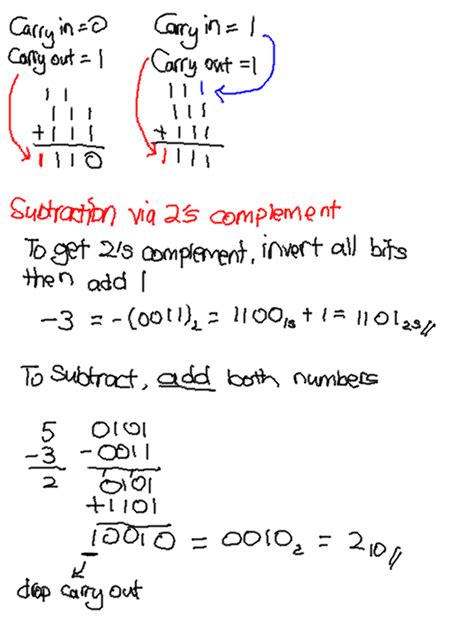 Carry in = 0
Carry out = 1
1 1
1 1 1
+ 1 1 1
1 1 1 0
Carry in = 1
Carry out = 1
1 1 1
1 1 1
+ 1 1 1
1 1 1 1
Subtraction via 2's complement
To get 2's complement, invert all bits
then add 1
-3 = -(0011)₂ = 1100₁ₛ + 1 = 1101₂ₛ //
To subtract, add both numbers
5 0101
-3 -0011
2 0101
+1101
10010 = 0010₂ = 2₁₀ //
drop carry out